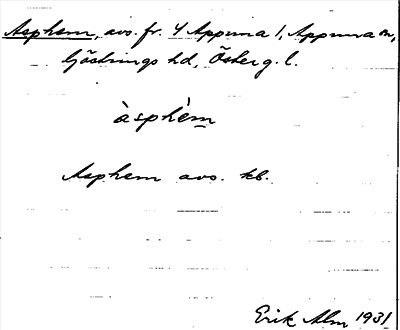 Asphem, avs. fr. 4 Appuna 1, Appuna sn,
Göstrings hd, Österg. l.
àsphèm
Asphem avs. kb.
Erik Alm 1931